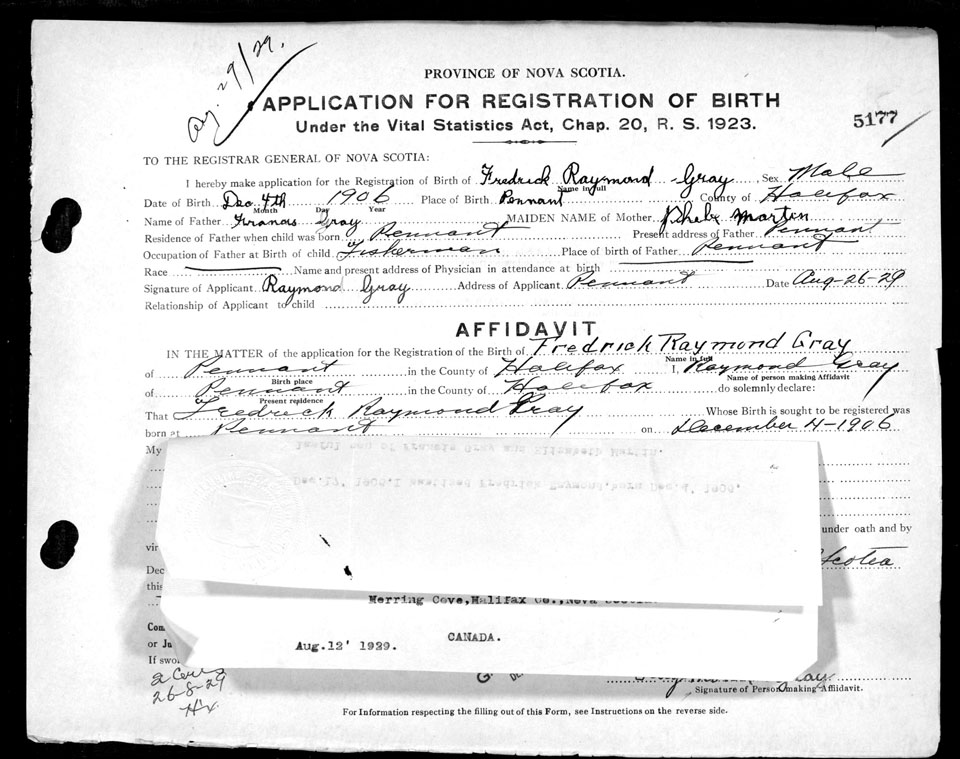 Aug. 29/29.
PROVINCE OF NOVA SCOTIA.
APPLICATION FOR REGISTRATION OF BIRTH
Under the Vital Statistics Act, Chap. 20, R. S. 1923.
5177
TO THE REGISTRAR GENERAL OF NOVA SCOTIA:
I hereby make application for the Registration of Birth of Fredrick Raymond Gray Sex Male
Name in full
Date of Birth Dec 4th 1906 Place of Birth Pennant County of Halifax
Month Day Year
Name of Father Francis Gray MAIDEN NAME of Mother Phebe Martin
Residence of Father when child was born Pennant Present address of Father Pennant
Occupation of Father at Birth of child Fisherman Place of birth of Father Pennant
Race Name and present address of Physician in attendance at birth
Signature of Applicant Raymond Gray Address of Applicant Pennant Date Aug-26-29
Relationship of Applicant to child
AFFIDAVIT
IN THE MATTER of the application for the Registration of the Birth of Fredrick Raymond Gray
Name in full
of Pennant in the County of Halifax I, Raymond Gray
Birth place Name of person making Affidavit
of Pennant in the County of Halifax do solemnly declare:
Present residence
That Fredrick Raymond Gray Whose Birth is sought to be registered was
born at Pennant on December 4-1906
My
lawful son of Francis Gray and Elizabeth Martin.
Dec.17, 1906.I baptised Fredrick Raymond,born Dec.4, 1906.
under oath and by
vir
Dec Scotia
this
Herring Cove,Halifax Co.,Nova Scotia.
CANADA.
Aug.12' 1929.
Com
or Ju
If swor
26-8-29
Hx.
Signature of Person making Affidavit.
For Information respecting the filling out of this Form, see Instructions on the reverse side.